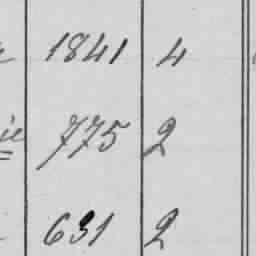 1841 4
775 2
631 2